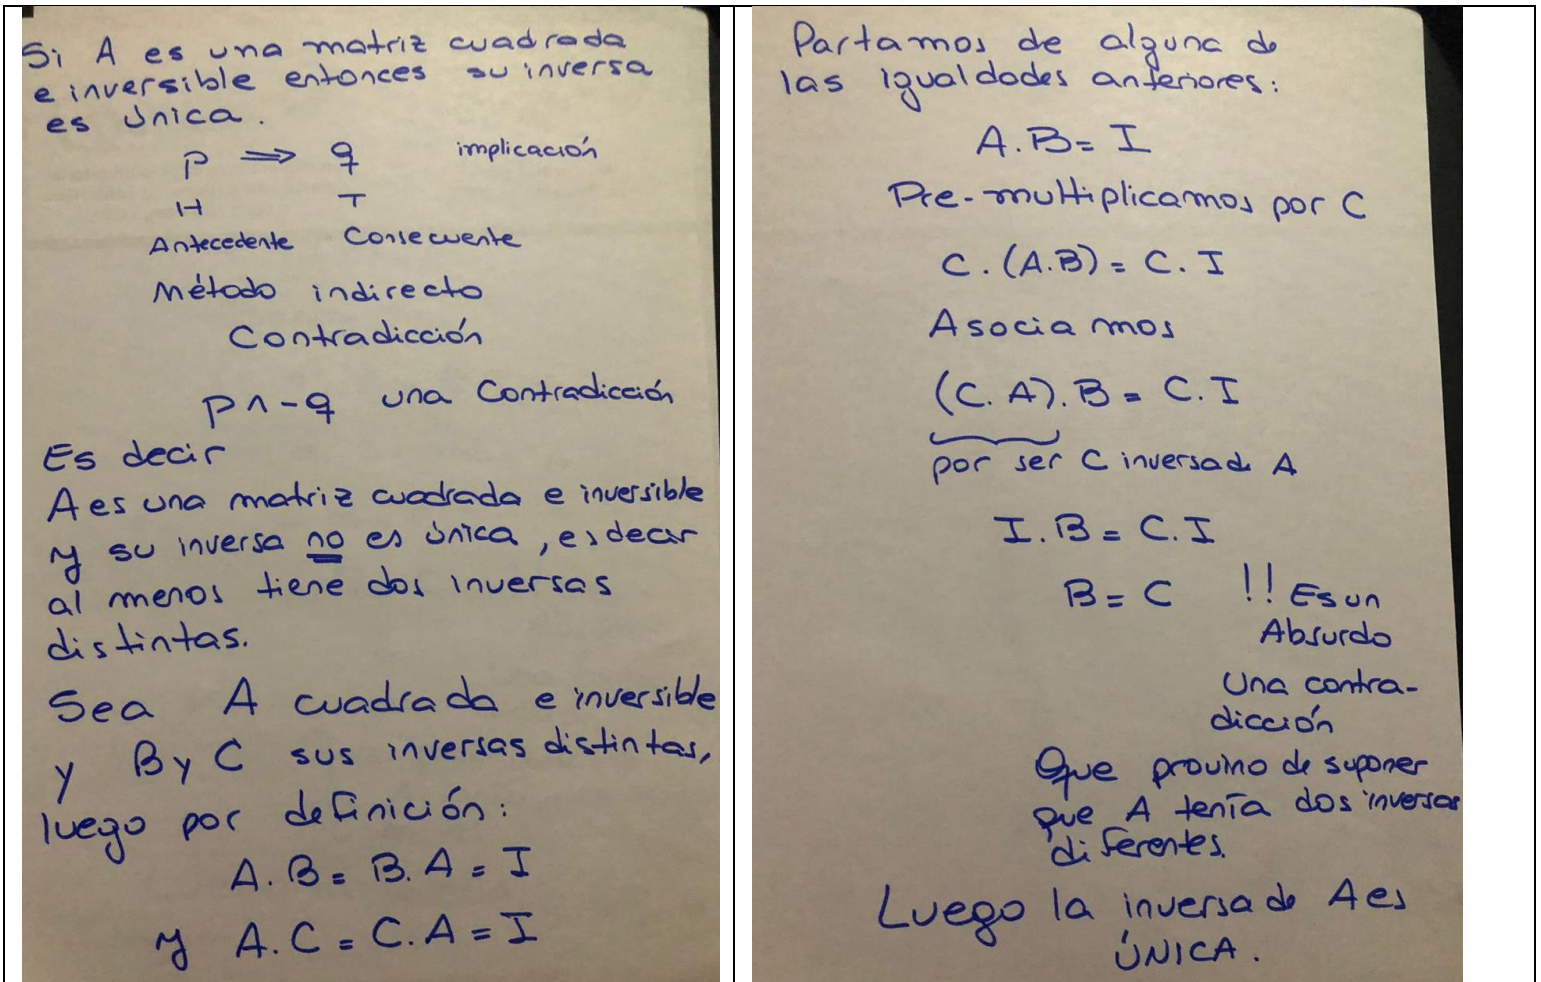 Si A es una matriz cuadrada
e inversible entonces su inversa
es única.
p ⟹ q implicación
H T
Antecedente Consecuente
Método indirecto
Contradicción
p ∧ -q una Contradicción
Es decir
A es una matriz cuadrada e inversible
y su inversa no es única, es decir
al menos tiene dos inversas
distintas.
Sea A cuadrada e inversible
y B y C sus inversas distintas,
luego por definición:
A.B = B.A = I
y A.C = C.A = I
Partamos de alguna de
las igualdades anteriores:
A.B = I
Pre-multiplicamos por C
C.(A.B) = C.I
Asociamos
(C.A).B = C.I
por ser C inversa de A
I.B = C.I
B = C !! Es un
Absurdo
Una contra-
dicción
Que provino de suponer
que A tenía dos inversas
diferentes.
Luego la inversa de A es
ÚNICA.